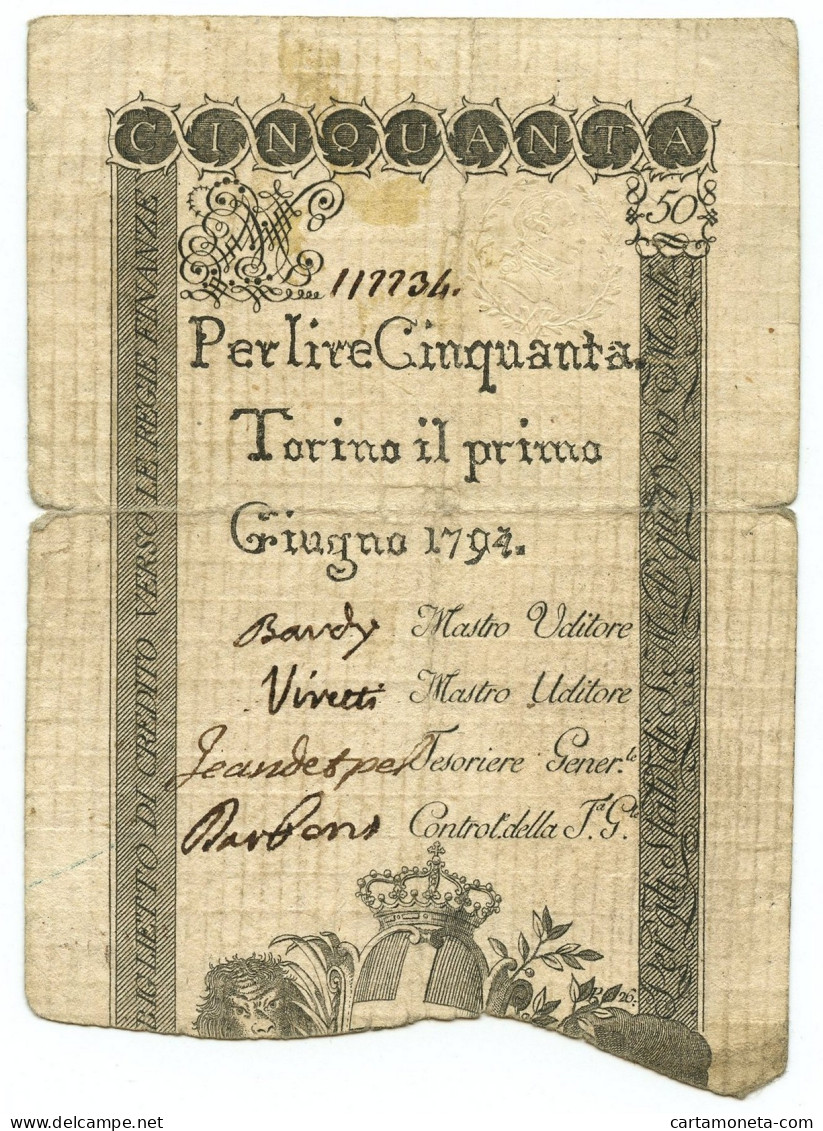 CINQUANTA
50
117734.
Per lire Cinquanta.
Torino il primo
Giugno 1794.
Bardy Mastro Uditore
Vivetti Mastro Uditore
Jeandespel Tesoriere Gener.le
Control.e della T.a G.le
BIGLIETTO DI CREDITO VERSO LE REGIE FINANZE
Per gli Stati di S. M. di quà da Monti
26.
www.delcampe.net
cartamoneta-com